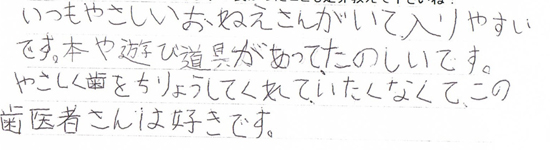 いつもやさしいおねえさんがいて、入りやすい
です。本や遊び道具があってたのしいです。
やさしく歯をちりょうしてくれて、いたくなくて、この
歯医者さんは好きです。